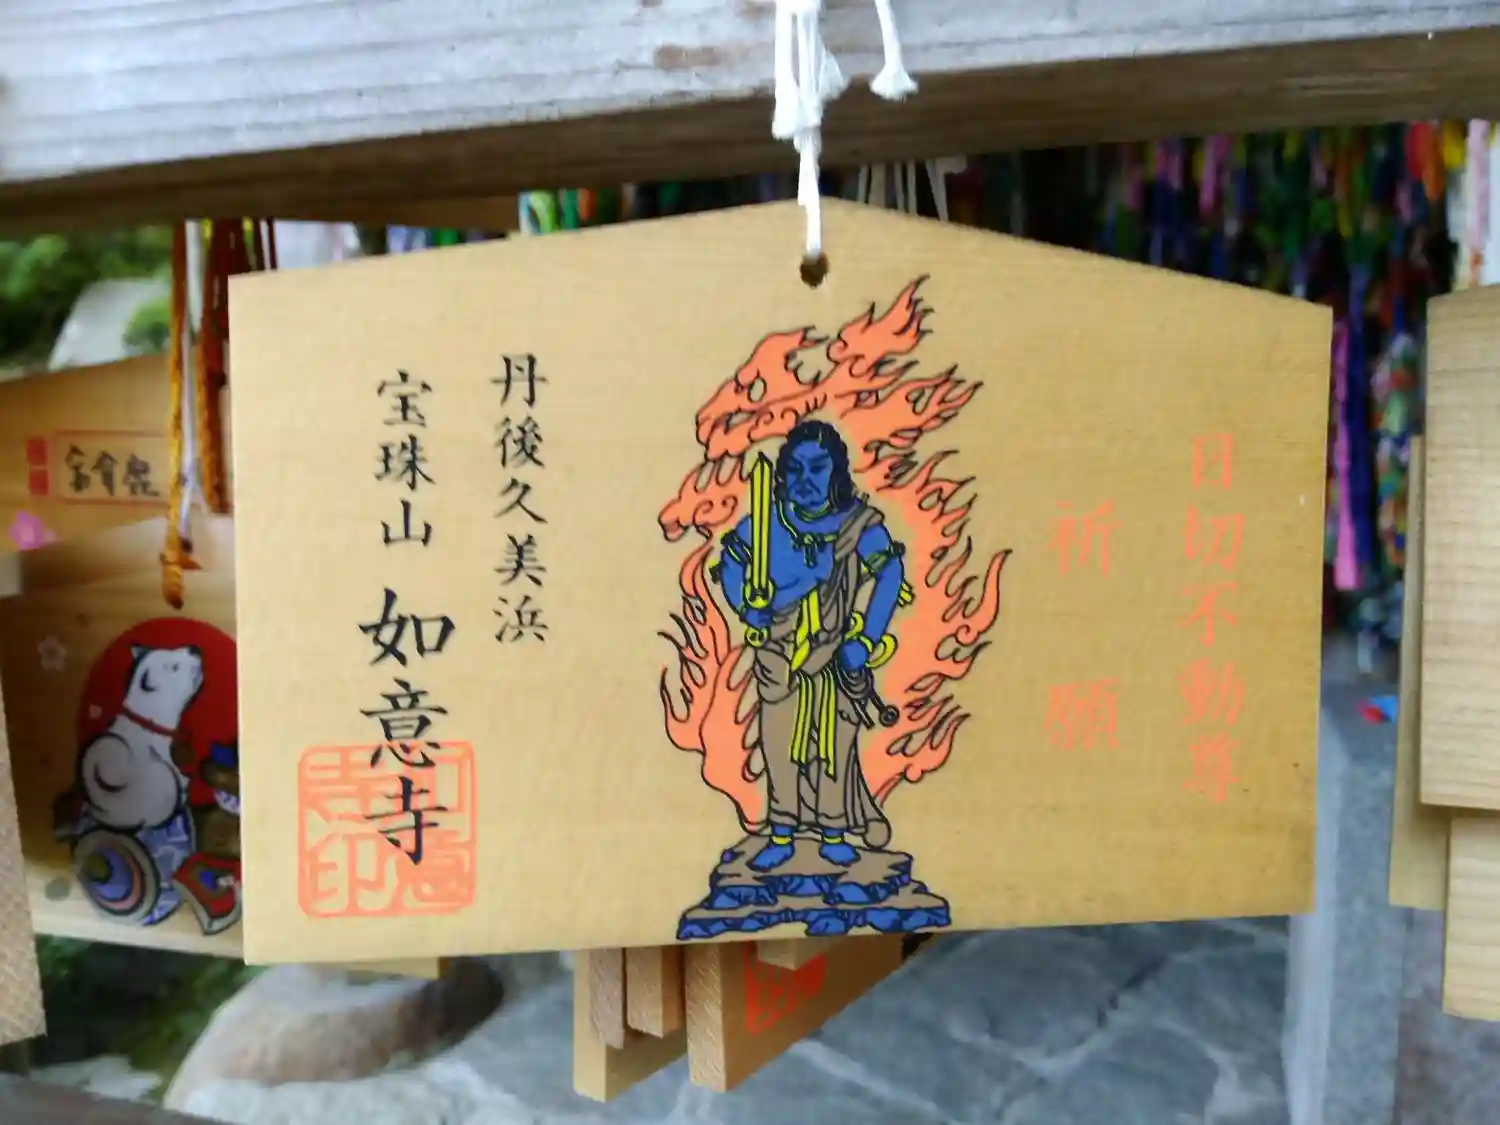 日切不動尊
祈願
丹後久美浜
宝珠山 如意寺